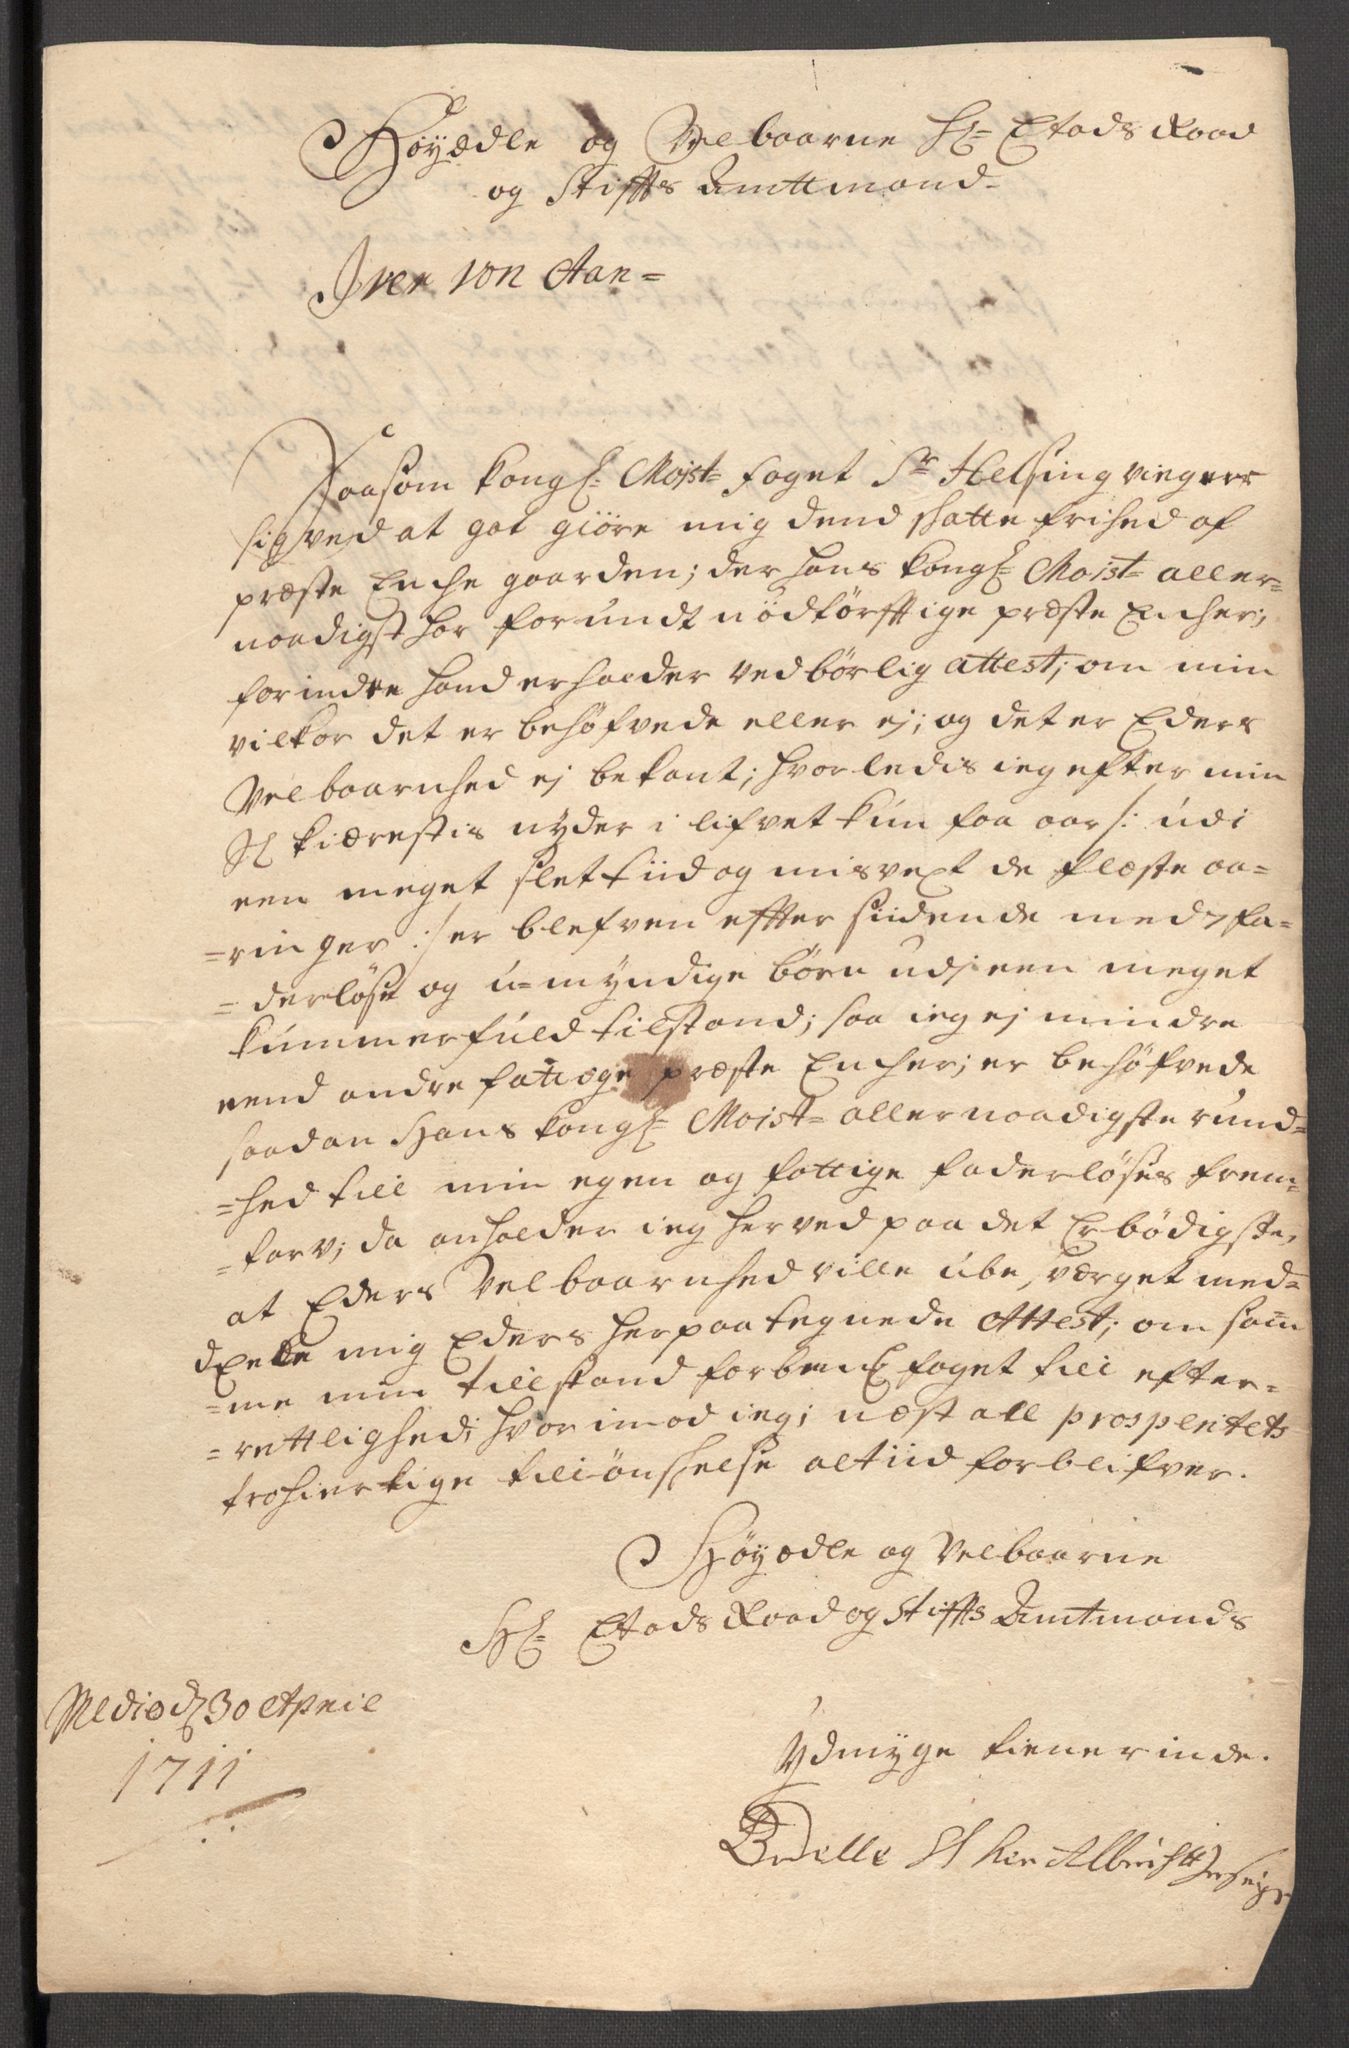 Høyædle og Velbaarne Hr= Etads Raad
og Stiffts Amttmand=
Iver von Aan=
Saasom Kongl: Majst= foget Sr Helsing viegerer
sig ved at got giöre mig dend skatte frihed af
præste Enche gaarden; der Hans Kongl: Maist= aller=
naadigst har forundt nödtörfftige præste Encher;
forindte hand erholder vedbörlig attest; om min
vilkor det er behöfvede eller ej; og det er Eders
Velbaarnhed ej bekant; hvorledis ieg efter min
Sl kiærestis nÿder i lifvet kun faa aar /: udi
een meget slet tiid og misvext de flæste aa=
=ringer :/ er blefven effter siidende med 7 fa=
=derlöse og u=myndige börn udj een meget
kummerfuld tilstand; saa ieg ej mindre
eend andre fattige præste Encher; er behöfvede
saadan Hans Kongl: Maist= allernaadigste rund=
=hed till min egen og fattige faderlöses frem=
=tarv; da anholder ieg herved paa det Erbödigste,
at Eders Velbaarnhed ville ube,værget med=
deele mig Eders herpaa tegnede Attest; om sam
=me min tillstand forbemte foget till efter=
=rettlighed; hvorimod ieg; næst all prosperitets
trohiertige tillönskelse altiid forblifver.
Høyædle og Velbaarne
Hr= Etads Raad og Stiffts Amtmands
Ydmyge tienerinde.
Medio d 30 April
1711
Albricht